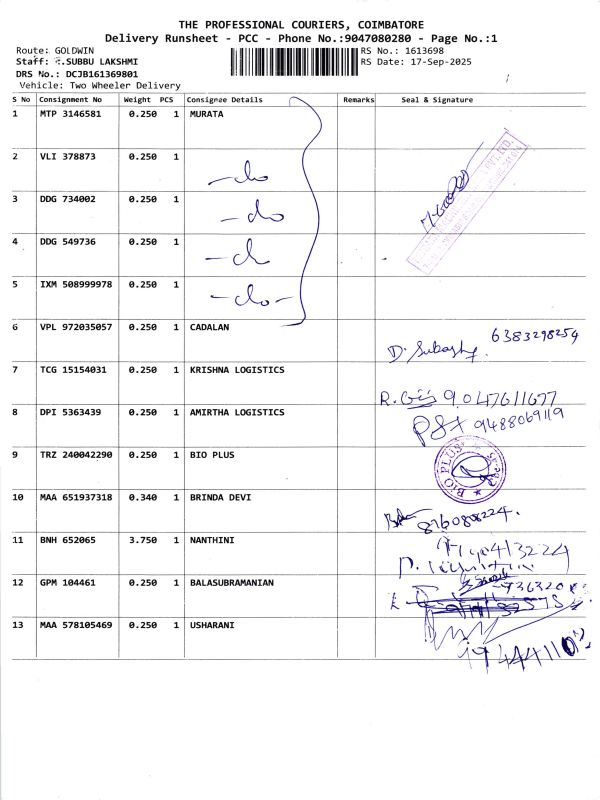 THE PROFESSIONAL COURIERS, COIMBATORE
Delivery Runsheet - PCC - Phone No.:9047080280 - Page No.:1
Route: GOLDWIN
RS No.: 1613698
Staff: .SUBBU LAKSHMI
RS Date: 17-Sep-2025
DRS No.: DCJB161369801
Vehicle: Two Wheeler Delivery
S No Consignment No Weight PCS Consignee Details Remarks Seal & Signature
1 MTP 3146581 0.250 1 MURATA
2 VLI 378873 0.250 1 -do
3 DDG 734002 0.250 1 -do
4 DDG 549736 0.250 1 -do
5 IXM 508999978 0.250 1 -do-
6 VPL 972035057 0.250 1 CADALAN D. Subash 6383298254
7 TCG 15154031 0.250 1 KRISHNA LOGISTICS R. 9047611677
8 DPI 5363439 0.250 1 AMIRTHA LOGISTICS 9488069119
9 TRZ 240042290 0.250 1 BIO PLUS BIO PLUS
10 MAA 651937318 0.340 1 BRINDA DEVI
11 BNH 652065 3.750 1 NANTHINI
12 GPM 104461 0.250 1 BALASUBRAMANIAN
13 MAA 578105469 0.250 1 USHARANI